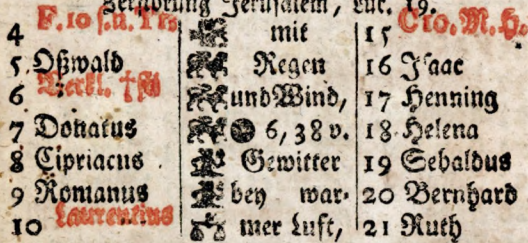 Zerstörung Jerusalem, Luc. 19.
4 F. 10 s.n. Trs mit 15 C10. M. H.
5 Oßwald Regen 16 Isaac
6 Verkl. und Wind, 17 Henning
7 Donatus 6, 38 v. 18 Helena
8 Cipriacus Gewitter 19 Sebaldus
9 Romanus bey war- 20 Bernhard
10 Laurentius mer Luft, 21 Ruth